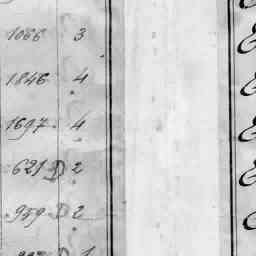 1066 3
1846 4
1697 4
621 D 2
959 D 2